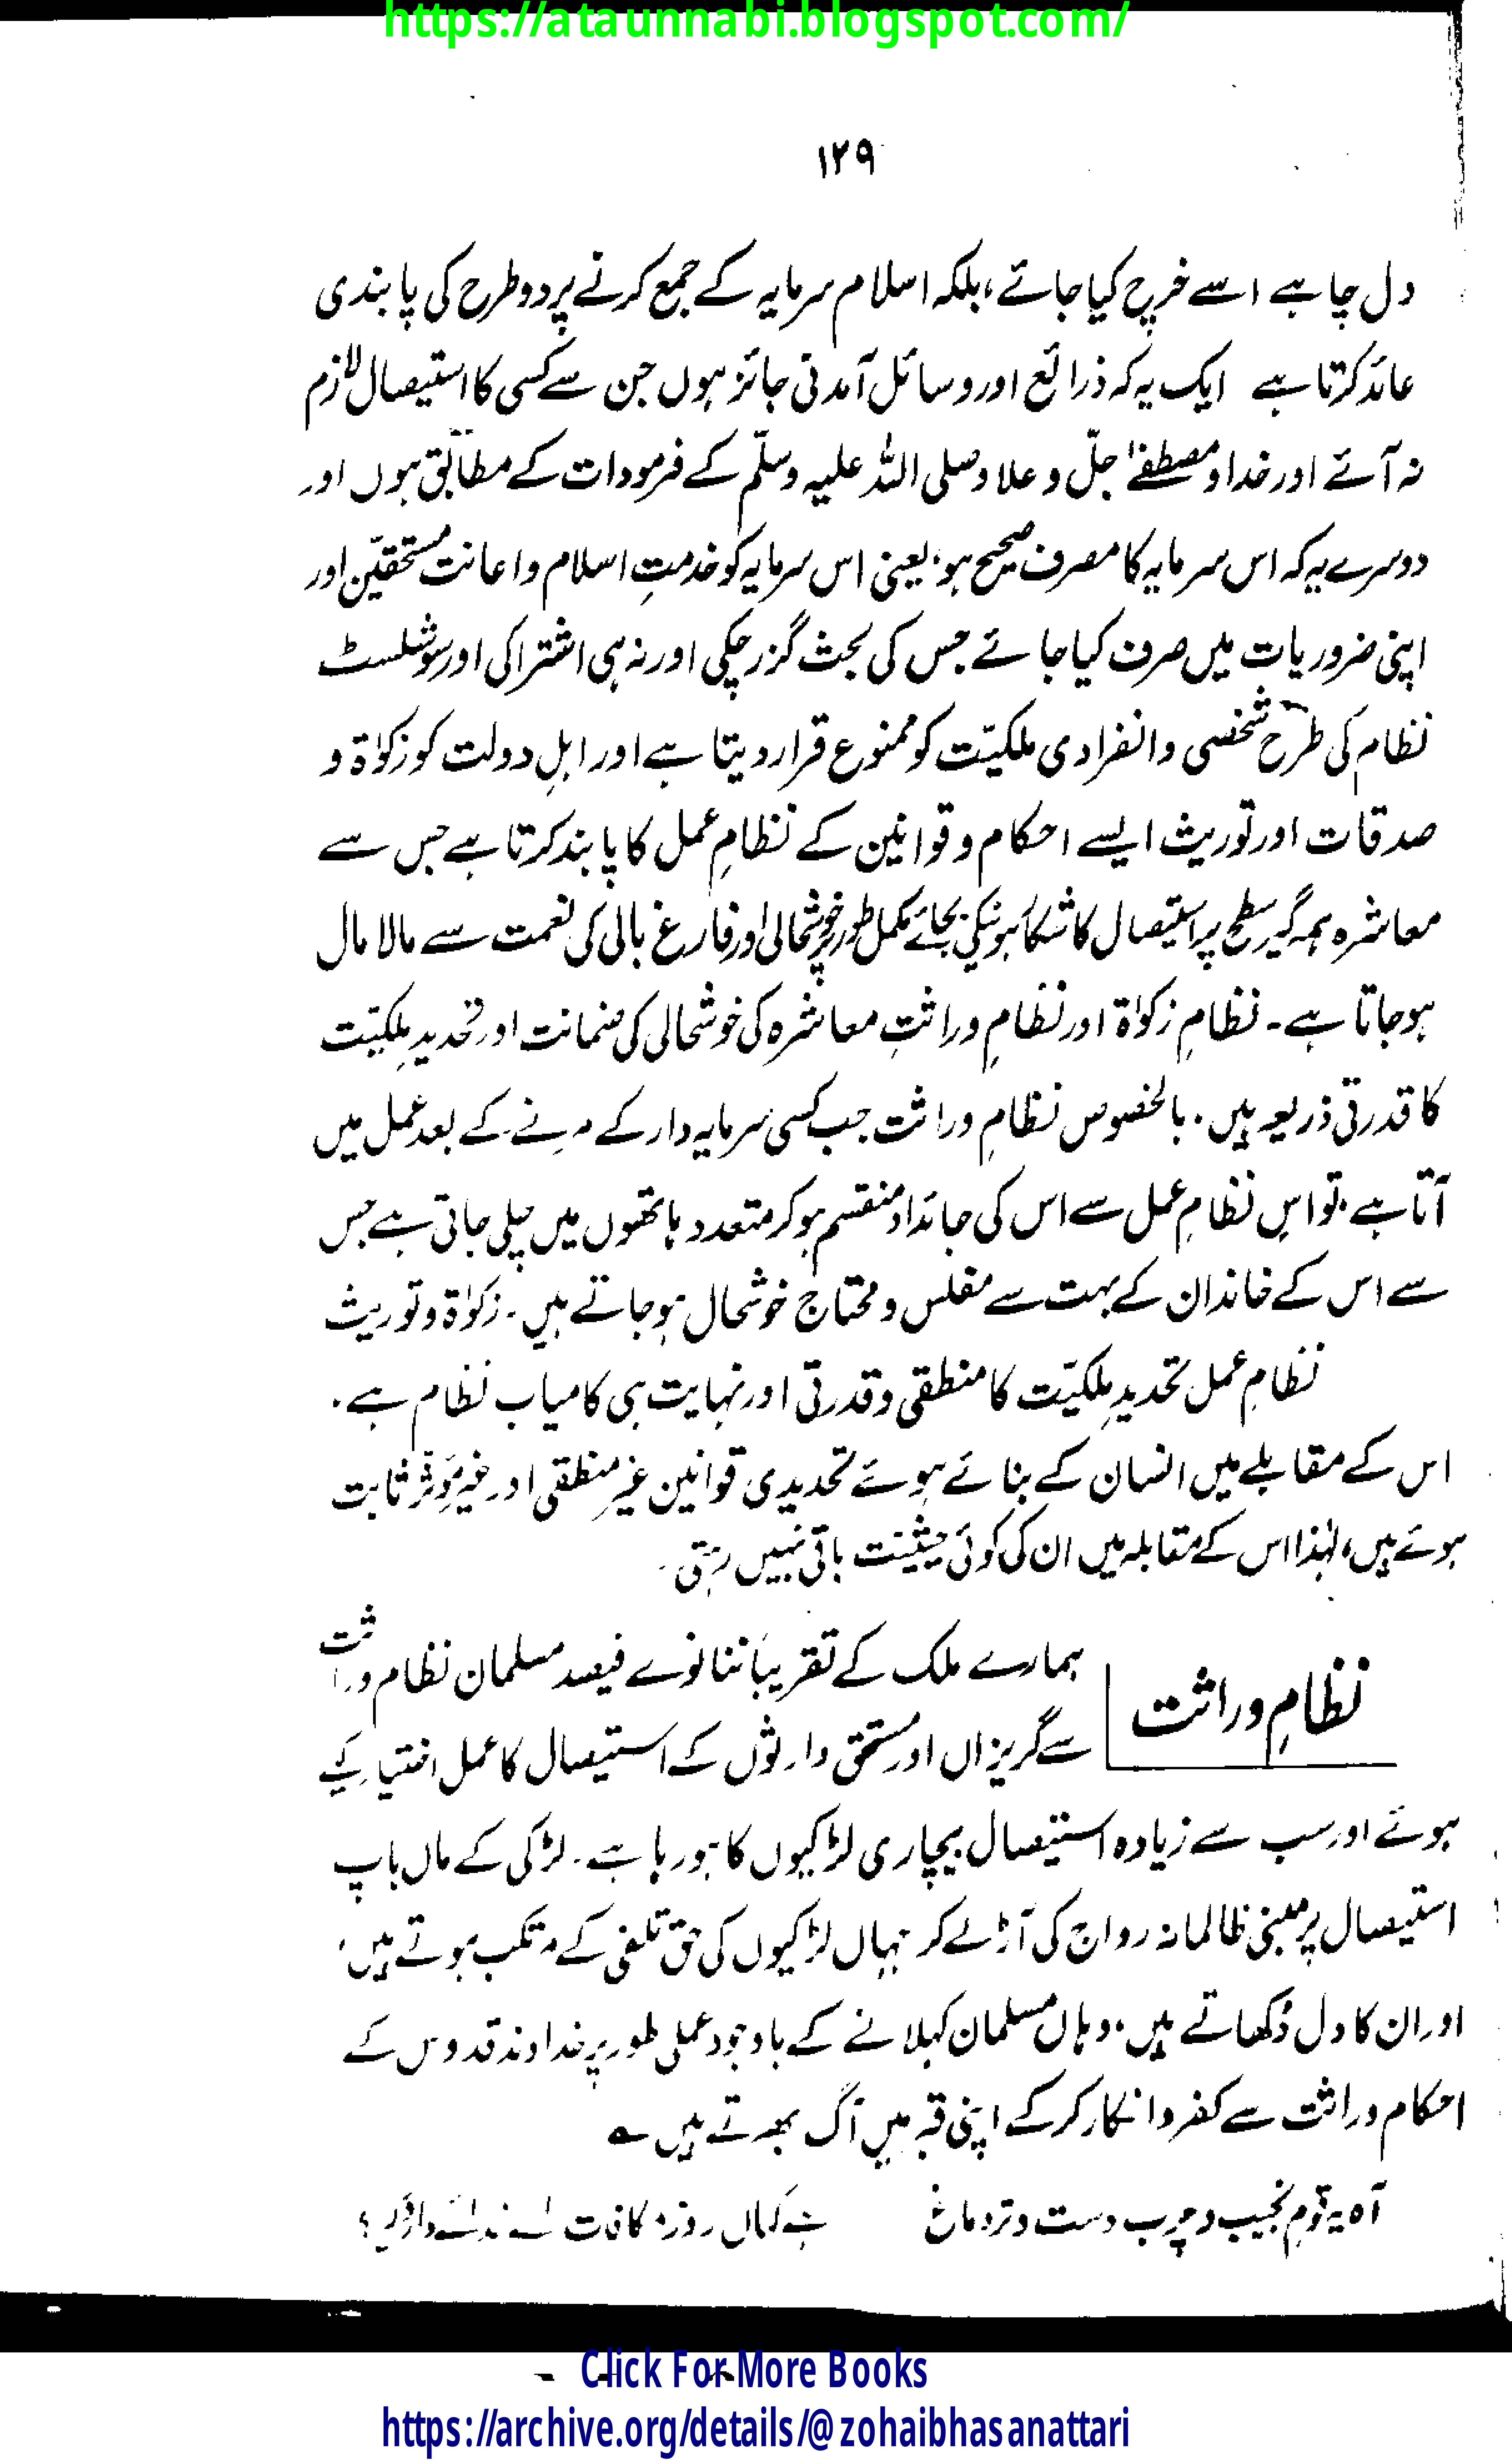 https://ataunnabi.blogspot.com/
١٢٩
دل چاہے اسے خرچ کیا جائے، بلکہ اسلام سرمایہ کے جمع کرنے پر دو طرح کی پابندی
عائد کرتا ہے ایک یہ کہ ذرائع اور وسائل آمدنی جائز ہوں جن سے کسی کا استیصال لازم
نہ آئے اور خدا و مصطفےٰ جلّ و علا و صلی اللہ علیہ وسلّم کے فرمودات کے مطابق ہوں اور
دوسرے یہ کہ اس سرمایہ کا مصرف صحیح ہو، یعنی اس سرمایہ کو خدمتِ اسلام و اعانت مستحقین اور
اپنی ضروریات میں صرف کیا جائے جس کی بحث گزر چکی اور نہ ہی اشتراکی اور سوشلسٹ
نظام کی طرح شخصی و انفرادی ملکیّت کو ممنوع قرار دیتا ہے اور اہلِ دولت کو زکوٰۃ و
صدقات اور توریث ایسے احکام و قوانین کے نظامِ عمل کا پابند کرتا ہے جس سے
معاشرہ ہمہ گیر سطح پر استیصال کا شکار ہونیکی بجائے مکمل طور پر خوشحالی اور فارغ بالی کی نعمت سے مالا مال
ہو جاتا ہے۔ نظامِ زکوٰۃ اور نظامِ وراثتِ معاشرہ کی خوشحالی کی ضمانت اور تحدیدِ ملکیّت
کا قدرتی ذریعہ ہیں۔ بالخصوص نظامِ وراثت جب کسی سرمایہ دار کے مرنے کے بعد عمل میں
آتا ہے، تو اس نظامِ عمل سے اس کی جائداد منقسم ہو کر متعدد ہاتھوں میں چلی جاتی ہے جس
سے اس کے خاندان کے بہت سے مفلس و محتاج خوشحال ہو جاتے ہیں۔ زکوٰۃ و توریث
نظامِ عمل تحدیدِ ملکیّت کا منطقی و قدرتی اور نہایت ہی کامیاب نظام ہے۔
اس کے مقابلے میں انسان کے بنائے ہوئے تحدیدی قوانین غیر منطقی اور غیر مؤثر ثابت
ہوئے ہیں، لہٰذا اس کے مقابلہ میں ان کی کوئی حیثیت باقی نہیں رہتی۔
نظامِ وراثت
ہمارے ملک کے تقریباً ننانوے فیصد مسلمان نظام وراثت
سے گریزاں اور مستحق وارثوں کے استیصال کا عمل اختیار کیے
ہوئے اور سب سے زیادہ استیصال بیچاری لڑکیوں کا ہو رہا ہے۔ لڑکی کے ماں باپ
استیصال پر مبنی ظالمانہ رواج کی آڑ لے کر جہاں لڑکیوں کی حق تلفی کے مرتکب ہوتے ہیں،
اور ان کا دل دُکھاتے ہیں، وہاں مسلمان کہلانے کے باوجود عملی طور پر خداوند قدوس کے
احکام وراثت سے کفر و انکار کر کے اپنی قبر میں آگ بھرتے ہیں ؎
آہ یہ قوم نجیب و چرب دست و تر دماغ ہے کہاں روز مکافات اے خدائے داروگیر؟
Click For More Books
https://archive.org/details/@zohaibhasanattari